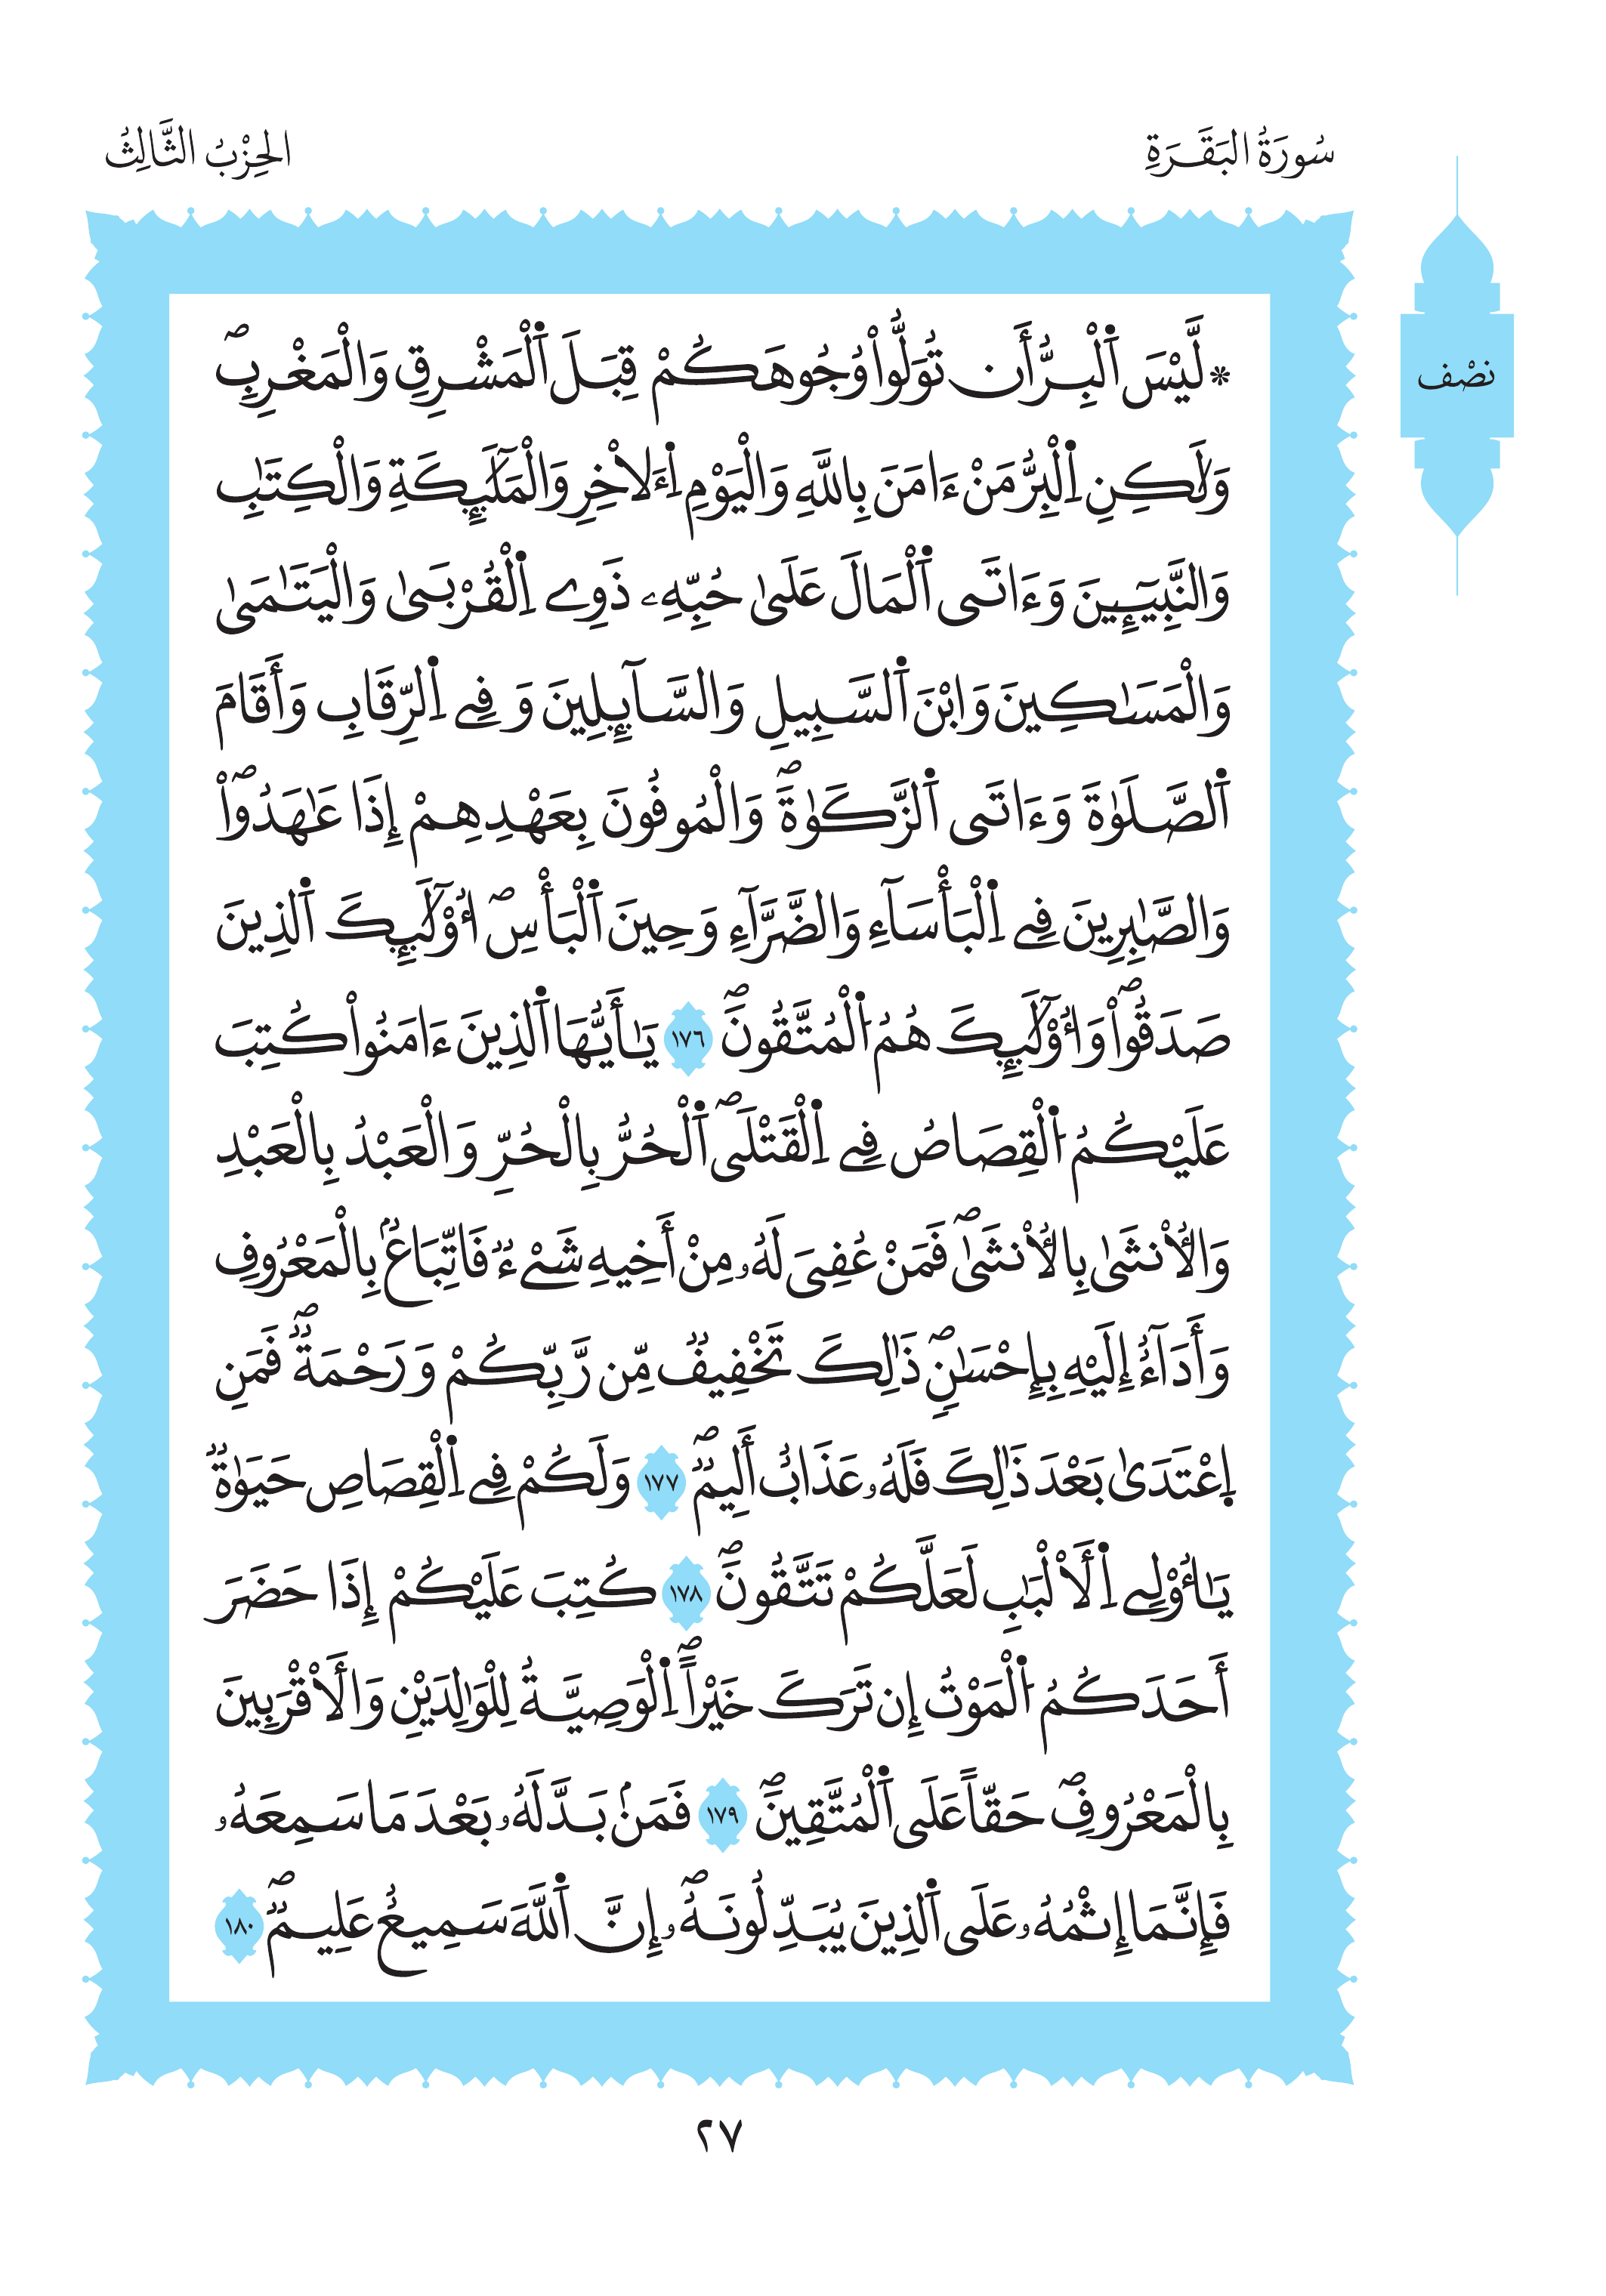 سُورَةُ البَقَرَةِ
الحِزْبُ الثَّالِثُ
نصْف
* لَّيْسَ اَ۬لْبِرُّ أَن تُوَلُّواْ وُجُوهَكُمْ قِبَلَ اَ۬لْمَشْرِقِ وَالْمَغْرِبِۖ
وَلَٰكِنِ اِ۬لْبِرُّ مَنْ ءَامَنَ بِاللَّهِ وَالْيَوْمِ اِ۬ءَلَاخِرِ وَالْمَلَٰٓئِكَةِ وَالْكِتَٰبِ
وَالنَّبِيٓـِٕينَ وَءَاتَى اَ۬لْمَالَ عَلَىٰ حُبِّهِۦ ذَوِے اِ۬لْقُرْبَىٰ وَالْيَتَٰمَىٰ
وَالْمَسَٰكِينَ وَابْنَ اَ۬لسَّبِيلِ وَالسَّآئِلِينَ وَفِے اِ۬لرِّقَابِ وَأَقَامَ
اَ۬لصَّلَوٰةَ وَءَاتَى اَ۬لزَّكَوٰةَۖ وَالْمُوفُونَ بِعَهْدِهِمْ إِذَا عَٰهَدُواْۖ
وَالصَّٰبِرِينَ فِے اِ۬لْبَأْسَآءِ وَالضَّرَّآءِ وَحِينَ اَ۬لْبَأْسِۖ أُوْلَٰٓئِكَ اَ۬لذِينَ
صَدَقُواْۖ وَأُوْلَٰٓئِكَ هُمُ اُ۬لْمُتَّقُونَۖ ١٧٦ يَٰأَيُّهَا اَ۬لذِينَ ءَامَنُواْ كُتِبَ
عَلَيْكُمُ اُ۬لْقِصَاصُ فِے اِ۬لْقَتْلَىۖ اَ۬لْحُرُّ بِالْحُرِّ وَالْعَبْدُ بِالْعَبْدِ
وَالُانثَىٰ بِالُانثَىٰۖ فَمَنْ عُفِىَ لَهُۥ مِنْ أَخِيهِ شَےْءٞ فَاتِّبَاعُۢ بِالْمَعْرُوفِ
وَأَدَآءٌ إِلَيْهِ بِإِحْسَٰنٖۖ ذَٰلِكَ تَخْفِيفٞ مِّن رَّبِّكُمْ وَرَحْمَةٞۖ فَمَنِ
اِ۪عْتَدَىٰ بَعْدَ ذَٰلِكَ فَلَهُۥ عَذَابٌ أَلِيمٞۖ ١٧٧ وَلَكُمْ فِے اِ۬لْقِصَاصِ حَيَوٰةٞ
يَٰأُوْلِے اِ۬لَالْبَٰبِ لَعَلَّكُمْ تَتَّقُونَۖ ١٧٨ كُتِبَ عَلَيْكُمْ إِذَا حَضَرَ
أَحَدَكُمُ اُ۬لْمَوْتُ إِن تَرَكَ خَيْراًۖ اِ۬لْوَصِيَّةُ لِلْوَٰلِدَيْنِ وَالَاقْرَبِينَ
بِالْمَعْرُوفِۖ حَقّاً عَلَى اَ۬لْمُتَّقِينَۖ ١٧٩ فَمَنۢ بَدَّلَهُۥ بَعْدَ مَا سَمِعَهُۥ
فَإِنَّمَا إِثْمُهُۥ عَلَى اَ۬لذِينَ يُبَدِّلُونَهُۥۖ إِنَّ اَ۬للَّهَ سَمِيعٌ عَلِيمٞۖ ١٨٠
٢٧